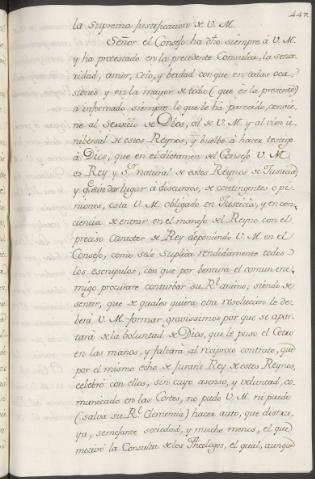 447.
la Suprema Justificacion de V. M.
Señor el Consejo ha dho siempre á V. M.
y ha protestado en la precedente Consulta, la since
ridad, amor, celo, y verdad con que en tales oca
siones y en la mayor de todas (que és la presente)
á informado siempre lo que le há parecido, convie
ne al Servicio de Dios, al de V. M. y al vien u
niversal de estos Reynos, y buelbe á hacer testigo
á Dios, que en el dictamen del Consejo V. M.
es Rey y Sr. natural de estos Reynos de Justicia
y sin dar lugar á discursos de contingentes o pi
niones, está V. M. obligado en Justicia, y en con
ciencia de entrar en el manejo del Reyno con el
preciso Caracter de Rey deponiendo V. M. en el
Consejo, como se lo suplica rendidamente todos
los escrupulos, con que por bentura el comun ene
migo procurare conturbar su Rl. animo; siendo de
sentir, que de qualesquiera otra resolucion le de
berá V. M. formar gravissimos por que se apar
tará de la voluntad de Dios, que le puso el Cetro
en las manos, y faltará al reciproco contrato, que
por el mismo echo de Jurarle Rey de estos Reynos,
celebró con ellos, sin cuyo asenso, y voluntad, co
municado en las Cortes, no pudo V. M. ni puede
(salva su Rl. Clemencia) hacer auto, que destru
ya, semejante sociedad, y mucho menos, el que
motivó la Consulta de los Theologos, el qual, aunque